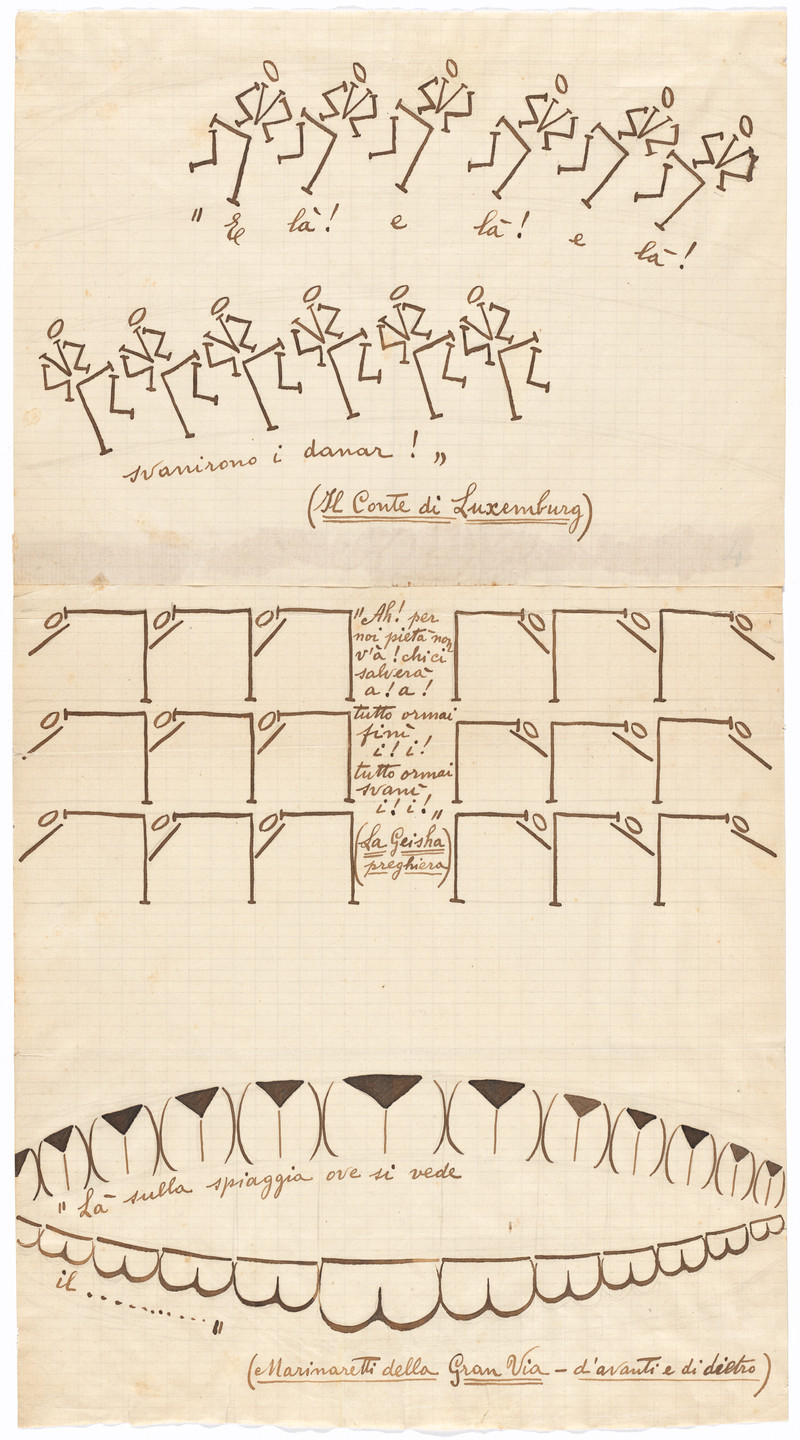 " E là! e là! e là!
svanirono i danar! "
(Il Conte di Luxemburg)
"Ah! per
noi pietà non
v'à! chi ci
salverà
a! a!
tutto ormai
finì
i! i!
tutto ormai
svanì
i! i! "
(La Geisha
preghiera)
" Là sulla spiaggia ove si vede
il .............. "
(Marinaretti della Gran Via - d'avanti e di dietro)